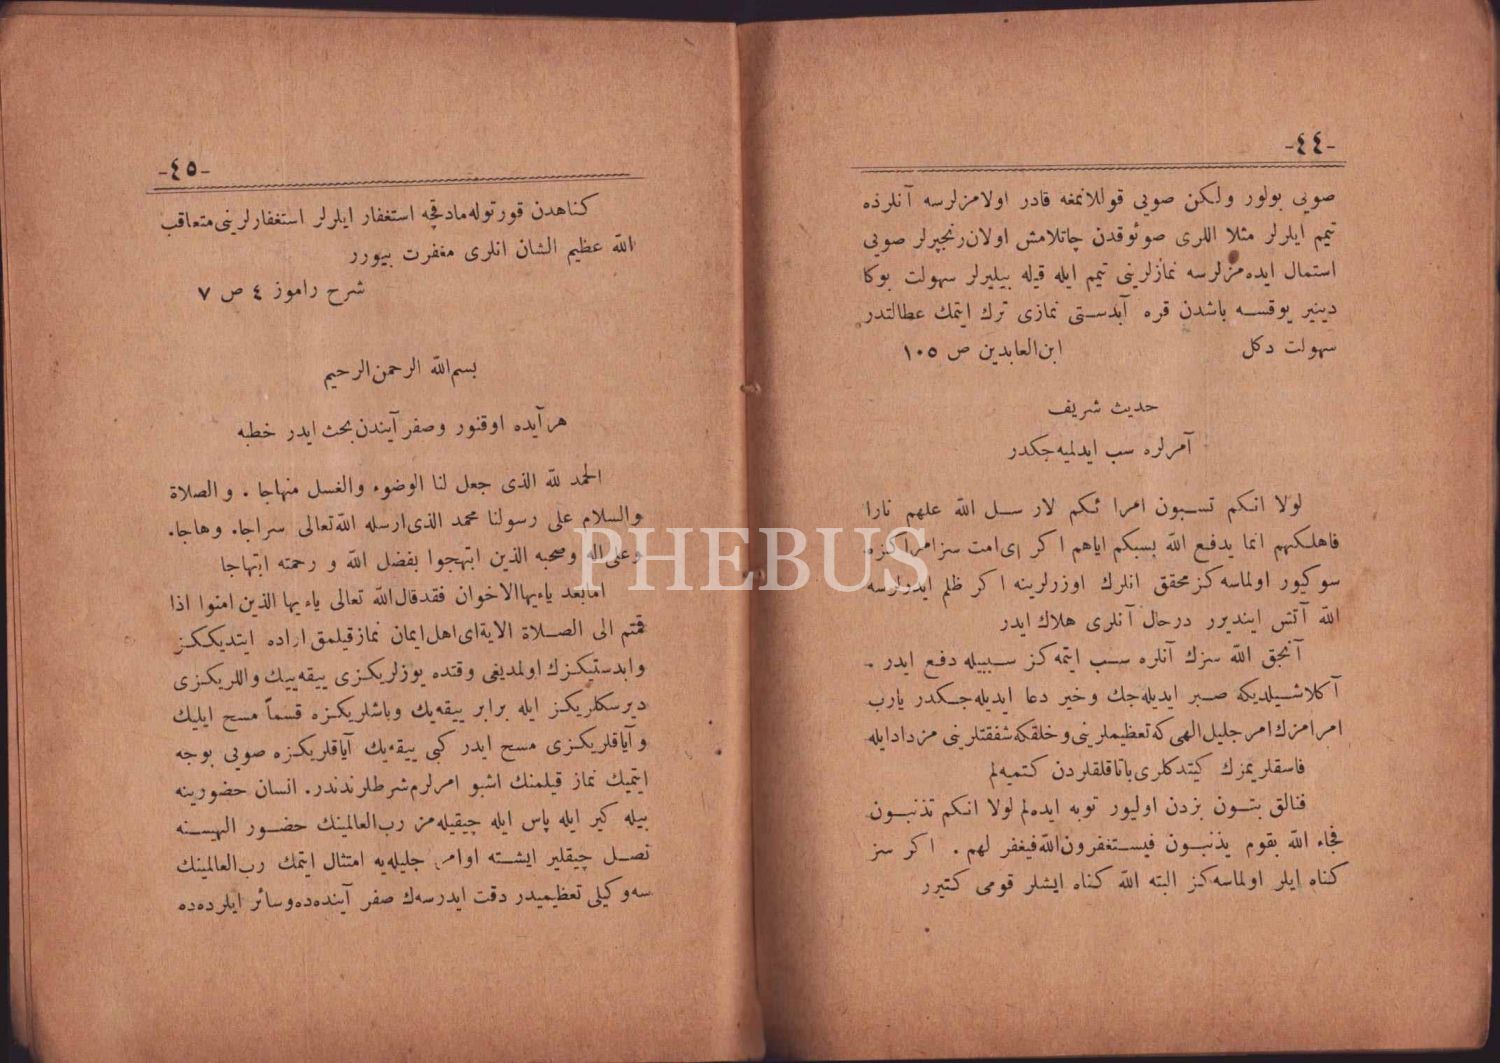 -٤٤-
صويى بولور ولكن صويى قوللانمغه قادر اولامزلرسه آنلرذه
تيمم ايلرلر مثلا اللرى صوئوقدن چاتلامش اولان رنجپرلر صويى
استمال ايده مزلرسه نمازلرينى تيمم ايله قيله بيليرلر سهولت بوكا
دينير يوقسه باشدن قره آبدستى نمازى ترك ايتمك عطالتدر
سهولت دكل ابن العابدين ص ١٠٥
حديث شريف
آمرلره سب ايدلميه جكدر
لولا انكم تسبون امرا ئكم لار سل الله علهم نارا
فاهلكهم انما يدفع الله بسبكم اياهم اكر اى امت سز امراكزه
سوكيور اولماسه كز محقق انلرك اوزرلرينه اكر ظلم ايدرلرسه
الله آتش اينديرر درحال آنلرى هلاك ايدر
آنجق الله سزك آنلره سب ايتمه كز سببيله دفع ايدر .
آكلاشيلديكه صبر ايديله جك وخير دعا ايديله جكدر يارب
امرامزك امر جليل الهى كه تعظيملرينى وخلقكه شفقتلرينى مزداد ايله
فاسقلريمزك كيتدكلرى باتاقلقلردن كتميه لم
فنالق بتون بزدن اوليور توبه ايده لم لولا انكم تذنبون
فجاء الله بقوم يذنبون فيستغفرون الله فيغفر لهم . اكر سز
كناه ايلر اولماسه كز البته الله كناه ايشلر قومى كتيرر
-٤٥-
كناهدن قورتوله مادقچه استغفار ايلرلر استغفارلرينى متعاقب
الله عظيم الشان انلرى مغفرت بيورر
شرح راموز ٤ ص ٧
بسم الله الرحمن الرحيم
هر آيده اوقنور وصفر آيندن بحث ايدر خطبه
الحمد لله الذى جعل لنا الوضوء والغسل منهاجا . والصلاة
والسلام على رسولنا محمد الذى ارسله الله تعالى سراجا. وهاجا.
وعلى اله وصحبه الذين ابتهجوا بفضل الله و رحمته ابتهاجا
اما بعد ياءيها الاخوان فقد قال الله تعالى ياءيها الذين امنوا اذا
قمتم الى الصلاة الاية اى اهل ايمان نماز قيلمق اراده ايتديككز
وابدستيكزك اولمديغى وقتده يوزلريكزى ييقه ييك واللريكزى
ديرسكلريكز ايله برابر ييقه يك وباشلريكزه قسماً مسح ايليك
و آياقلريكزى مسح ايدر كبى ييقه يك آياقلريكزه صويى بوجه
ايتميك نماز قيلمنك اشبو امرلرم شرطلرندندر. انسان حضورينه
بيله كير ايله پاس ايله چيقيله مز رب العالمينك حضور الهيسنه
نصل چيقلير ايشته اوامر جليله يه امتثال ايتمك رب العالمينك
سه و كيلى تعظيميدر دقت ايدرسه ك صفر آينده ده وسائر ايلرده ده